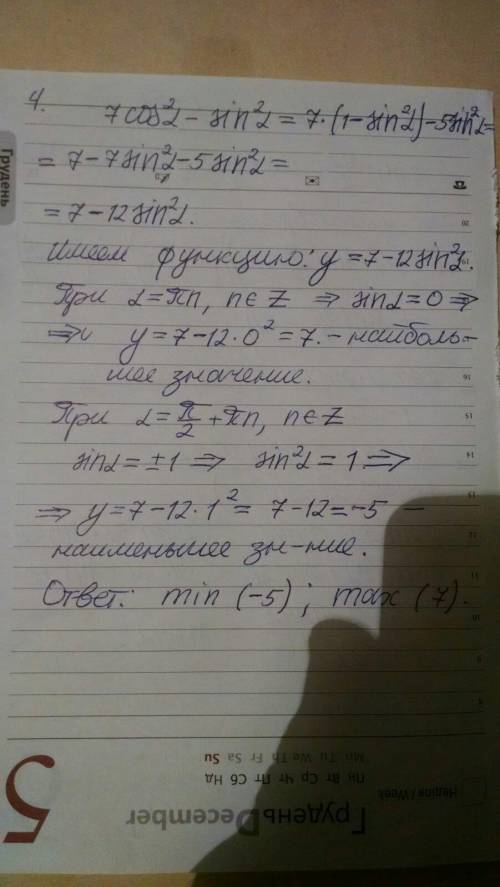 4. 7cos²α - sin²α = 7·(1-sin²α)-5sin²α=
= 7-7sin²α-5sin²α=
=7-12sin²α.
Имеем функцию: y=7-12sin²α.
При α=πn, n∈Z ⇒ sinα=0 ⇒
⇒ y=7-12·0²=7.-наиболь-
шее значение.
При α=π/2+πn, n∈Z
sinα=±1 ⇒ sin²α=1 ⇒
⇒ y=7-12·1²= 7-12=-5 -
наименьшее зн-ние.
Ответ: min (-5); max (7).
Грудень
20
19
16
15
14
13
12
11
10
9
8
Неділя / Week
Пн Вт Ср Чт Пт Сб Нд
Mn Tu We Th Fr Sa Su
ГруденьDecember
5